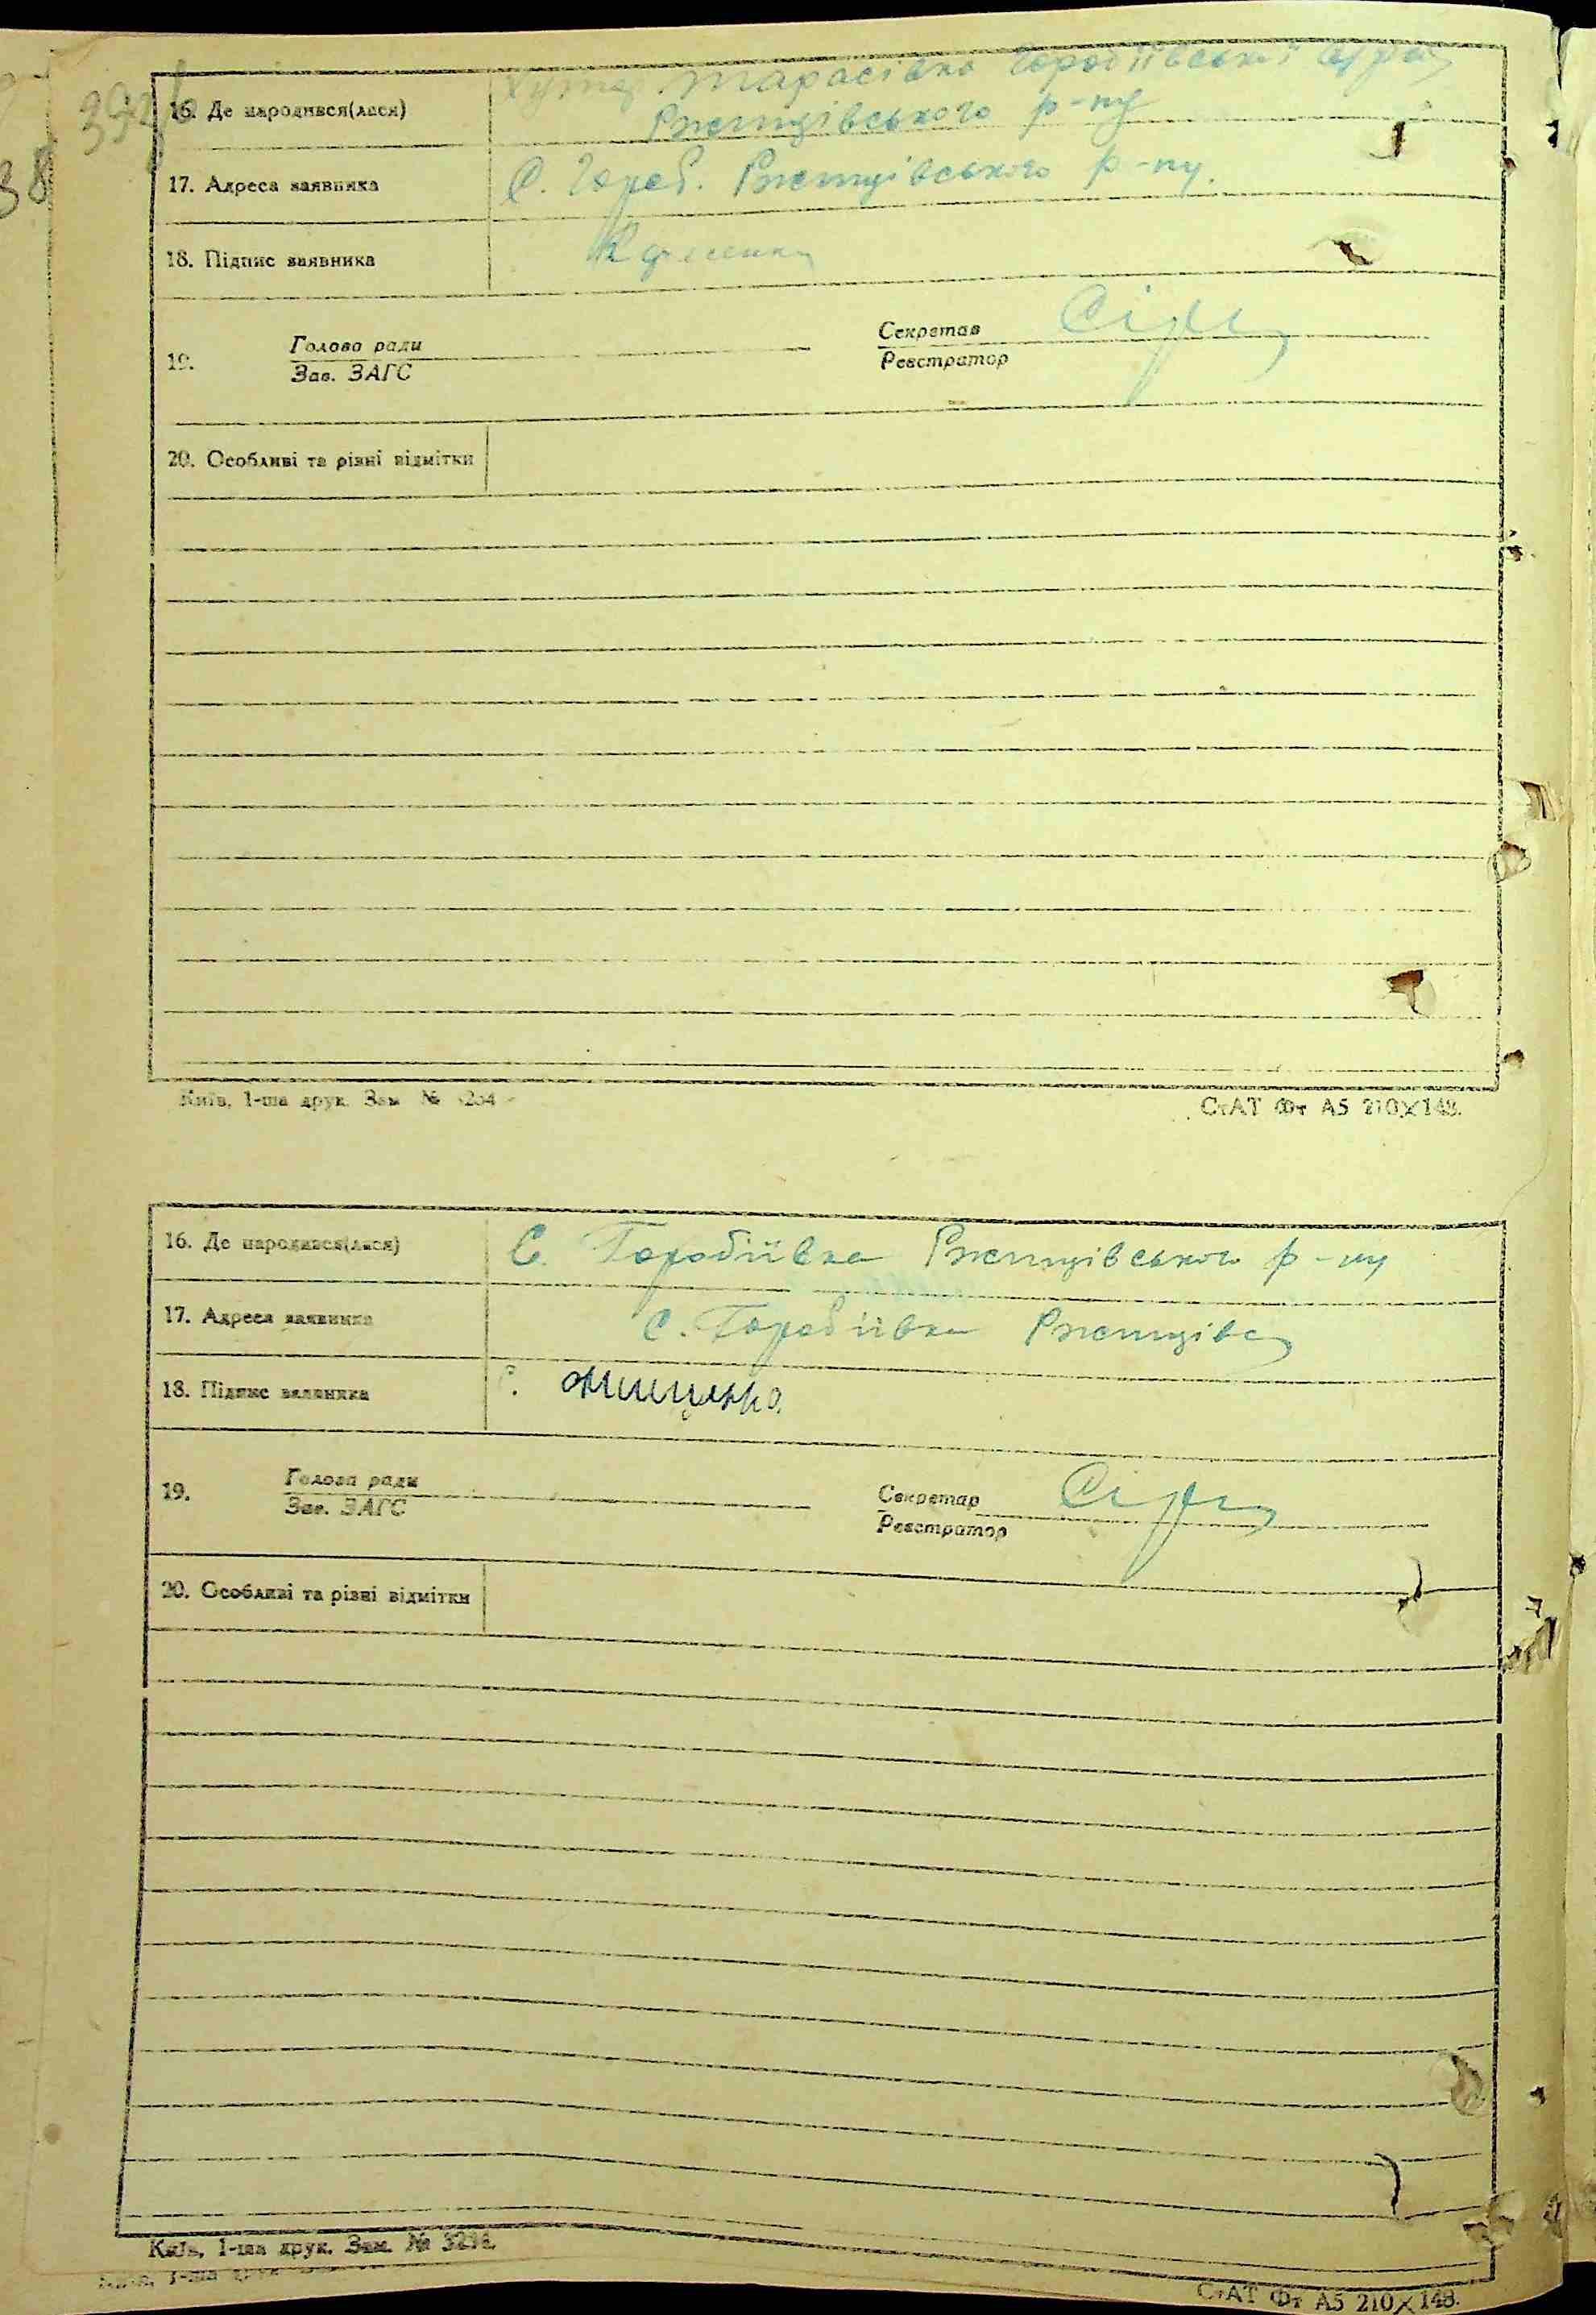 38
16. Де народився(лася) Хутор Тарасівка Горобіївської с/ради
Ржищівського р-ну
17. Адреса заявника С. Гороб. Ржищівського р-ну.
18. Підпис заявника
19. Голова ради Секретар
Зав. ЗАГС Реєстратор
20. Особливі та різні відмітки
Київ, 1-ша друк. Зам. №
СтАТ Фт А5 210×148.
16. Де народився(лася) С. Горобіївка Ржищівського р-ну
17. Адреса заявника С. Горобіївка Ржищівс
18. Підпис заявника Онищенко
19. Голова ради Секретар
Зав. ЗАГС Реєстратор
20. Особливі та різні відмітки
Київ, 1-ша друк. Зам. №
СтАТ Фт А5 210×148.